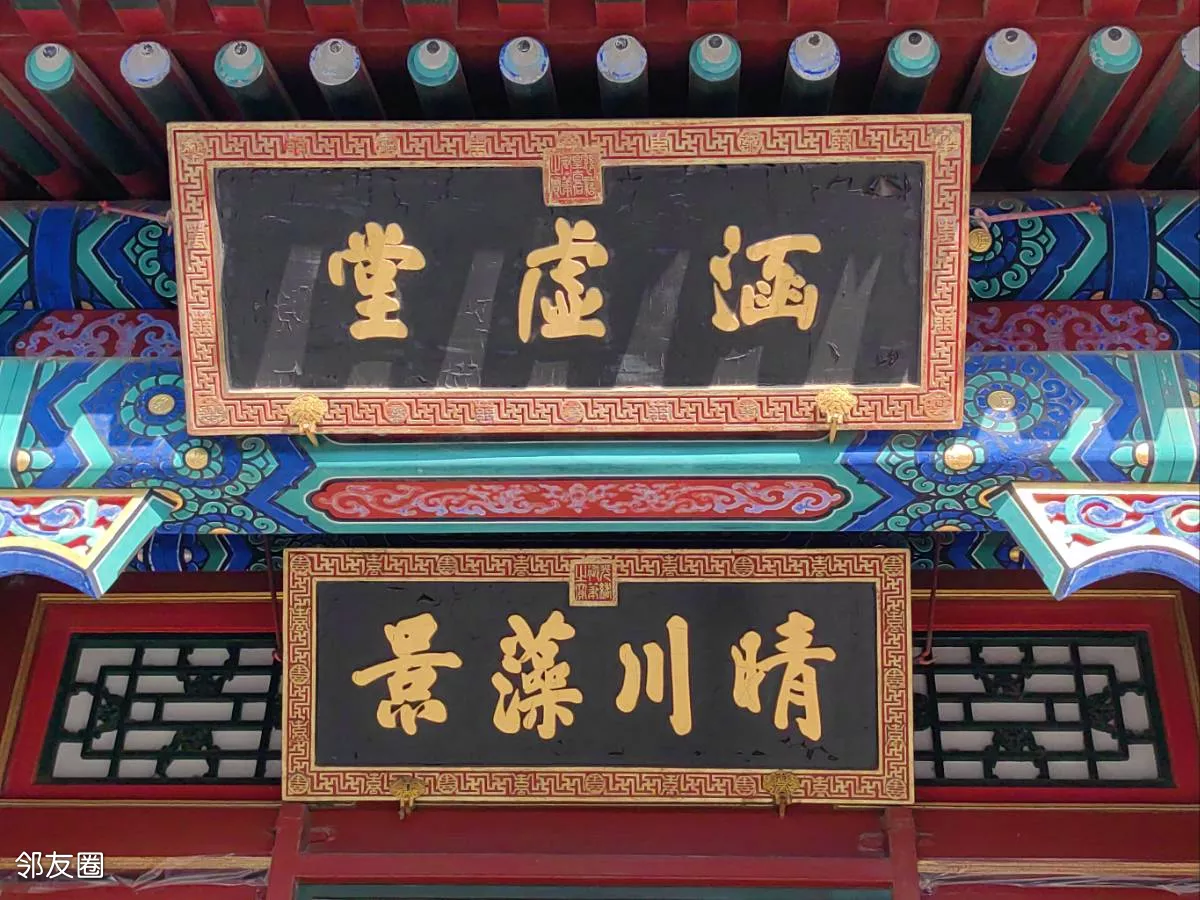 涵虚堂
晴川藻景
邻友圈